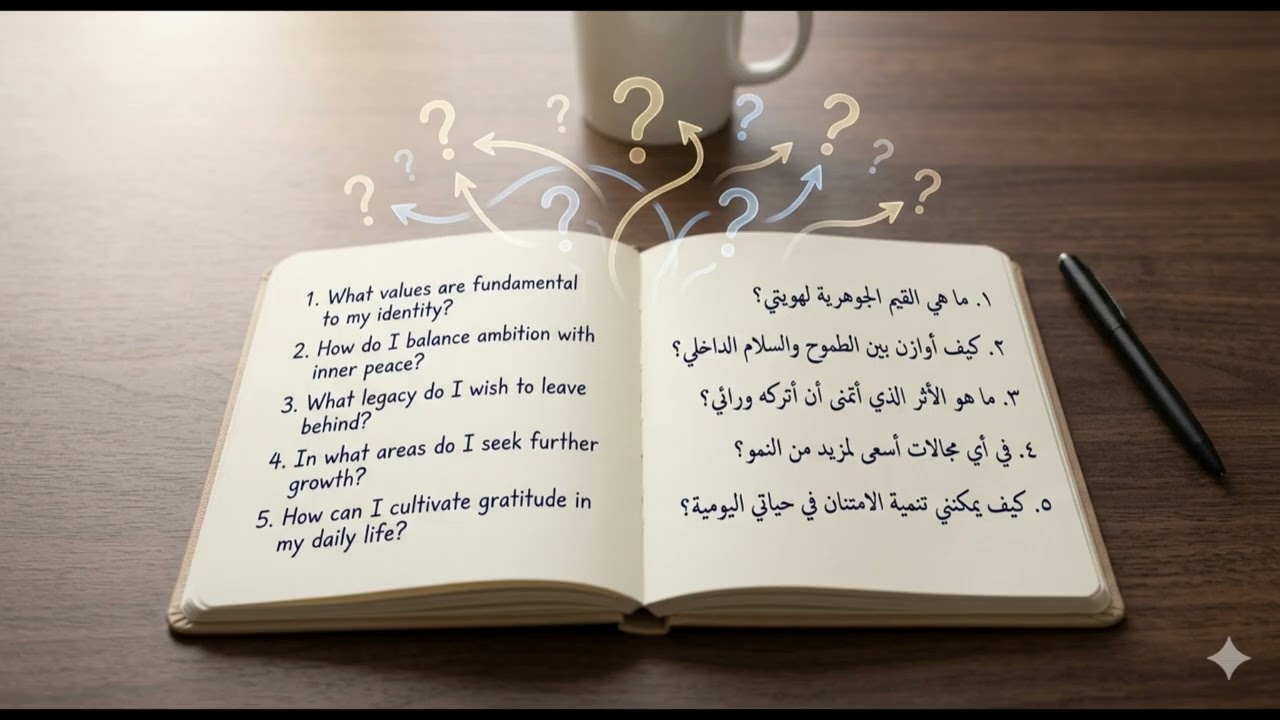 1. What values are fundamental
to my identity?
2. How do I balance ambition with
inner peace?
3. What legacy do I wish to leave
behind?
4. In what areas do I seek further
growth?
5. How can I cultivate gratitude in
my daily life?
١. ما هي القيم الجوهرية لهويتي؟
٢. كيف أوازن بين الطموح والسلام الداخلي؟
٣. ما هو الأثر الذي أتمنى أن أتركه ورائي؟
٤. في أي مجالات أسعى لمزيد من النمو؟
٥. كيف يمكنني تنمية الامتنان في حياتي اليومية؟